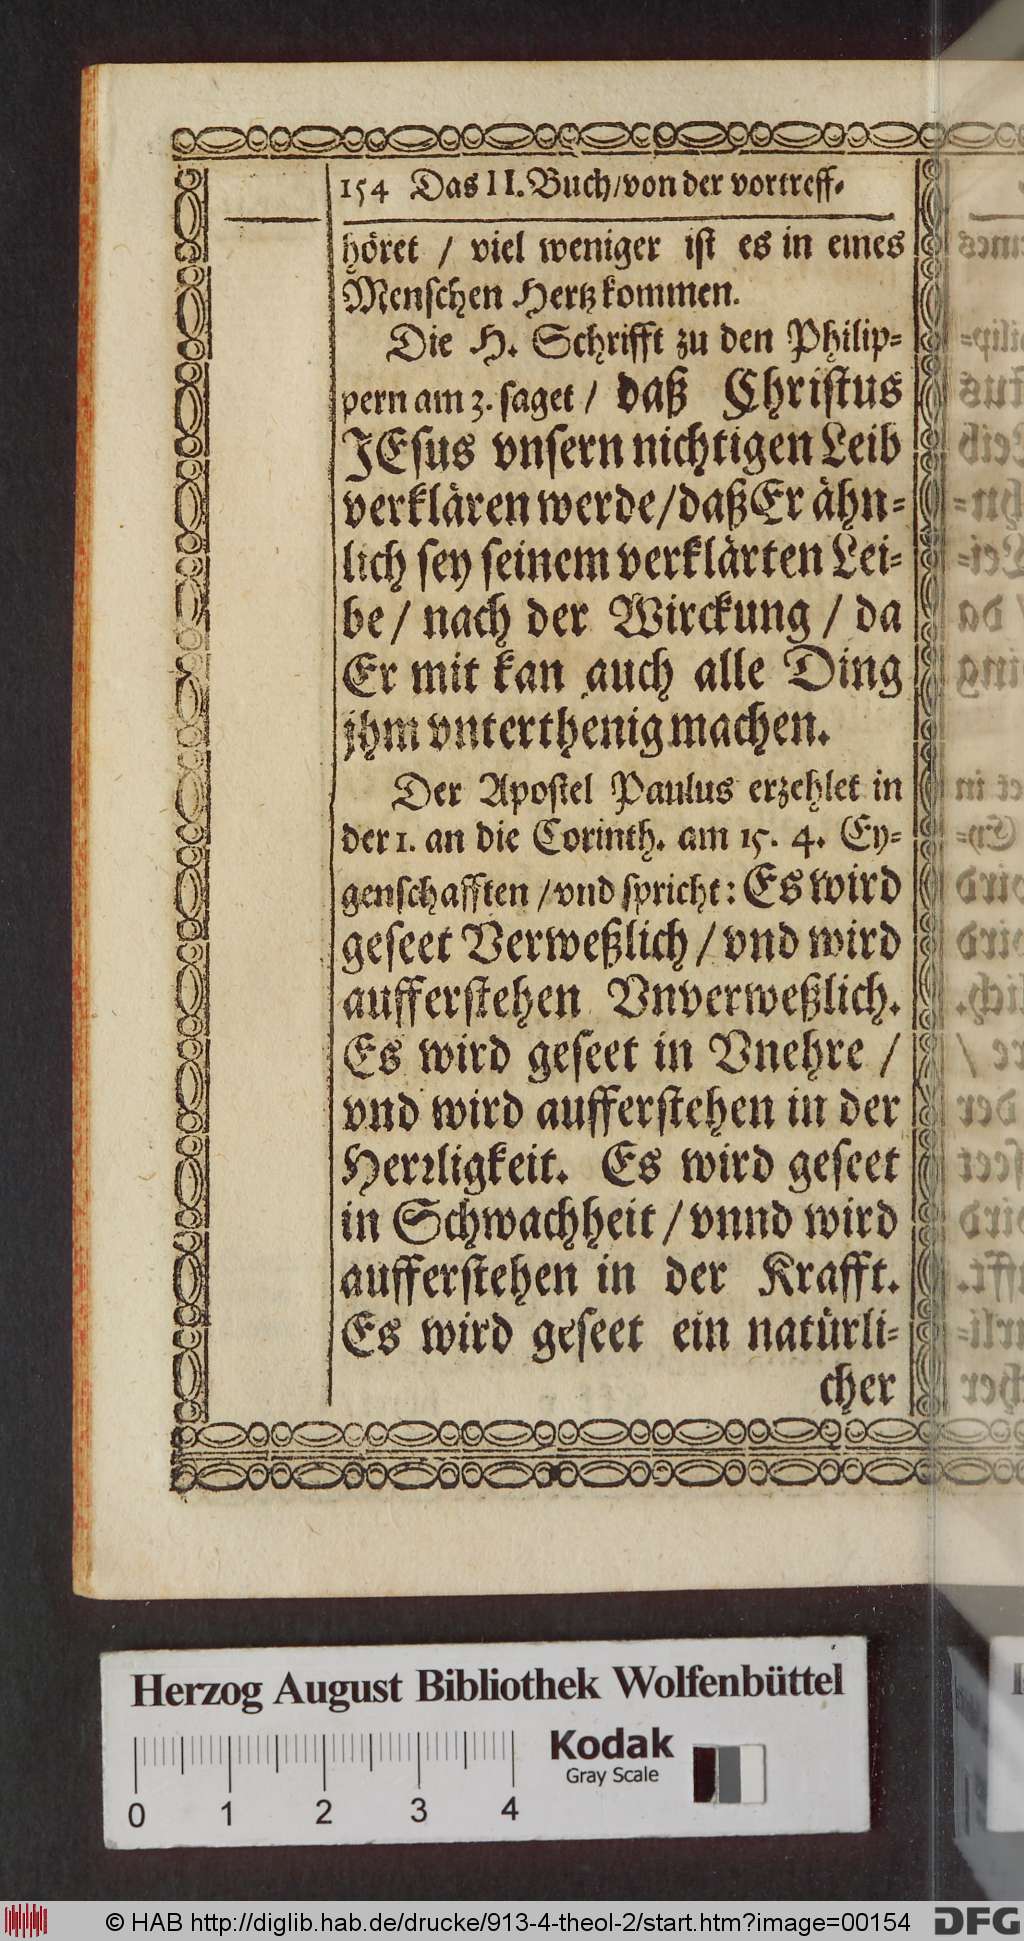 154 Das II. Buch/von der vortreff-
höret / viel weniger ist es in eines
Menschen Hertz kommen.
Die H. Schrifft zu den Philip-
pern am 3. saget / daß Christus
JEsus vnsern nichtigen Leib
verklären werde/daß Er ähn-
lich sey seinem verklärten Lei-
be / nach der Wirckung / da
Er mit kan auch alle Ding
jhm vnterthenig machen.
Der Apostel Paulus erzehlet in
der 1. an die Corinth. am 15. 4. Ey-
genschafften /vnd spricht: Es wird
geseet Verweßlich / vnd wird
aufferstehen Vnverweßlich.
Es wird geseet in Vnehre /
vnd wird aufferstehen in der
Herrligkeit. Es wird geseet
in Schwachheit / vnnd wird
aufferstehen in der Krafft.
Es wird geseet ein natürli-
cher
Herzog August Bibliothek Wolfenbüttel
Kodak
Gray Scale
0 1 2 3 4
© HAB http://diglib.hab.de/drucke/913-4-theol-2/start.htm?image=00154
DFG